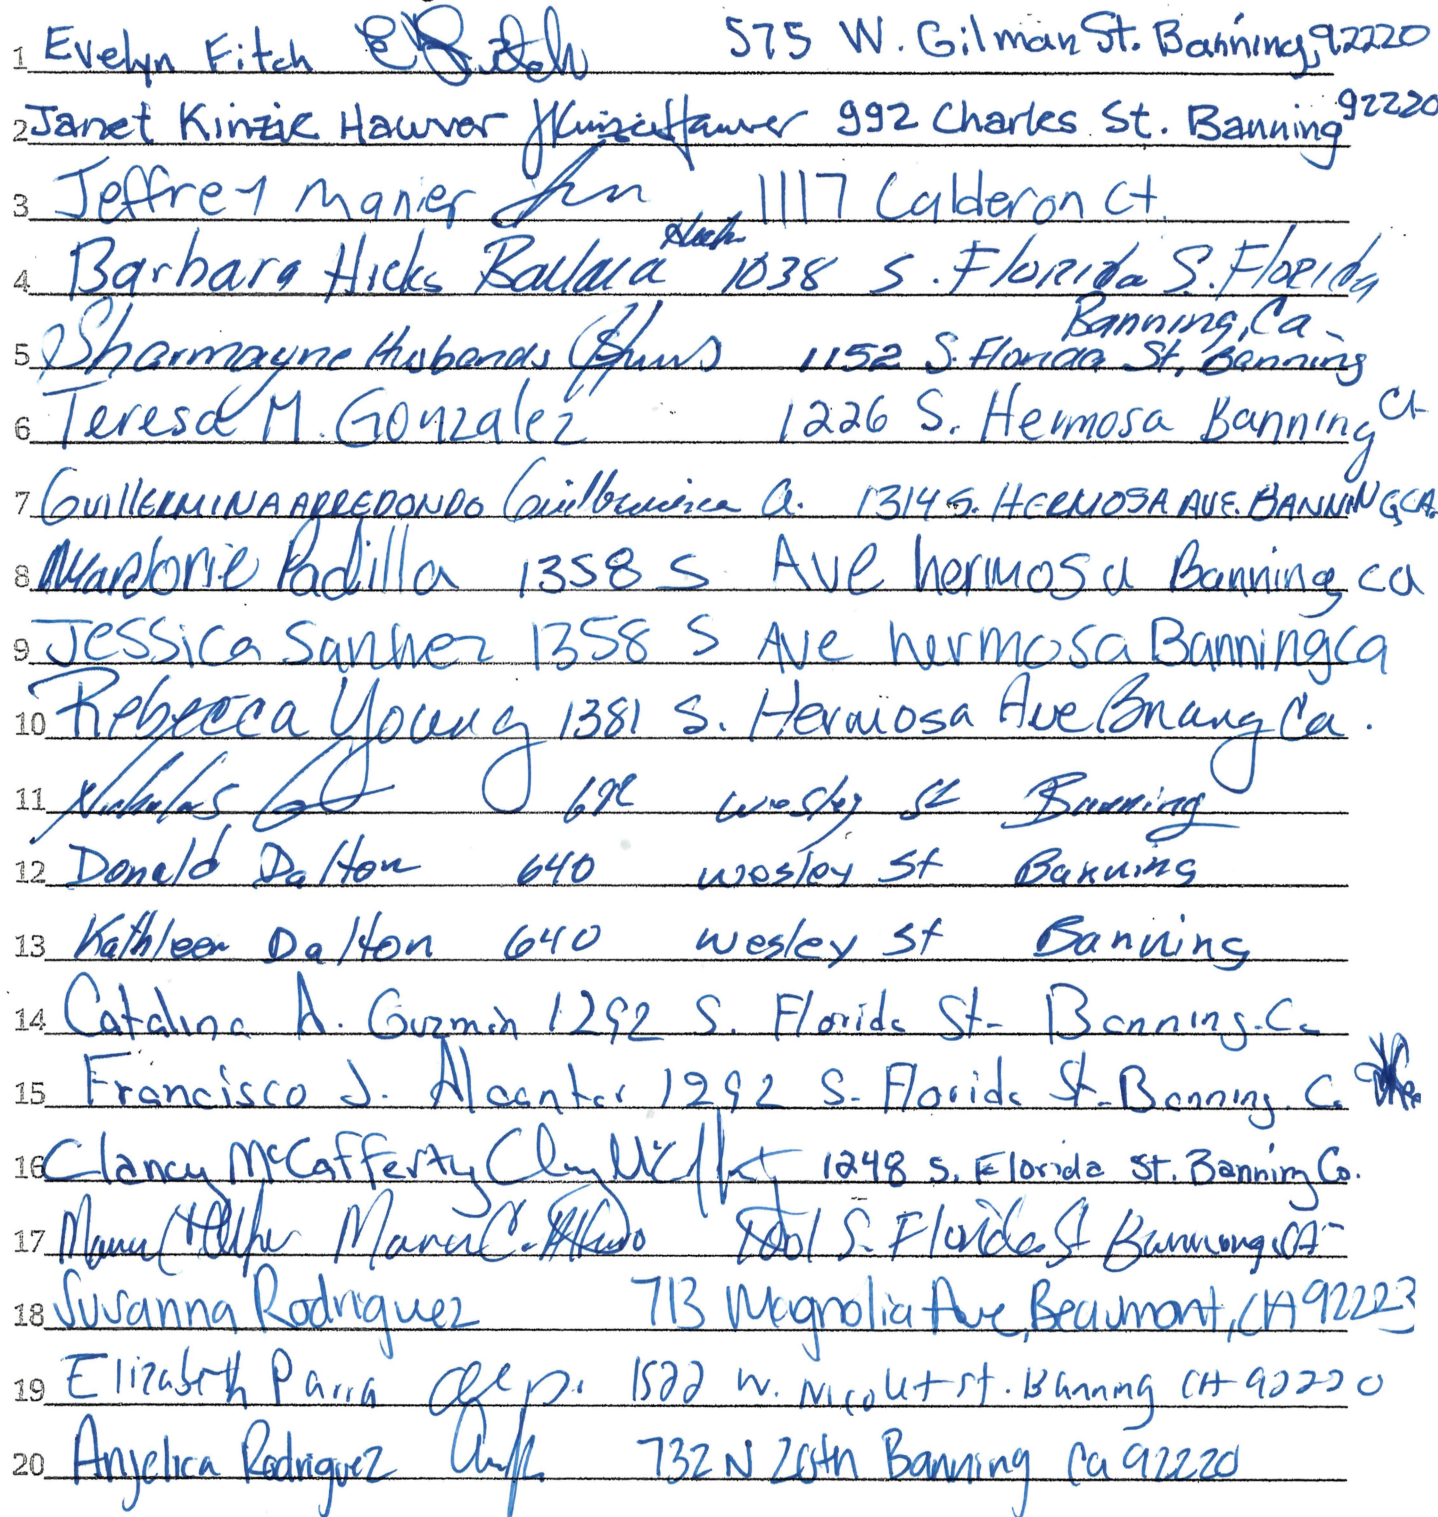 1 Evelyn Fitch E Fitch 575 W. Gilman St. Banning, 92220
2 Janet Kinzie Hawver JKinzieHawver 992 Charles St. Banning 92220
3 Jeffrey Manier 1117 Calderon Ct.
4 Barbara Hicks Barbara Hicks 1038 S. Florida S. Florida
Banning, Ca
5 Sharmayne Husbands 1152 S. Florida St, Banning
6 Teresa M. Gonzalez 1226 S. Hermosa Banning
7 GUILLERMINA ARREDONDO Guillermina A. 1314 S. HERMOSA AVE. BANNING, CA.
8 Marjorie Padilla 1358 S Ave hermosa Banning ca
9 Jessica Sanhez 1358 S Ave hermosa Banning ca
10 Rebecca Young 1381 S. Hermosa Ave Ca.
11 Nicholas wesley st Banning
12 Donald Dalton 640 wesley St Banning
13 Kathleen Dalton 640 wesley St Banning
14 Catalina A. Guzman 1292 S. Florida St- Banning. Ca
15 Francisco J. Alcantar 1292 S- Florida St- Banning. Ca
16 Clancy McCafferty 1248 S. Florida St. Banning Ca.
17 S. Florida St Banning, CA
18 Susanna Rodriguez 713 Magnolia Ave, Beaumont, CA 92223
19 Elizabeth Parra 1522 W. Nicolet st. Banning CA 92220
20 Anjelica Rodriguez 732 N 20th Banning Ca 92220